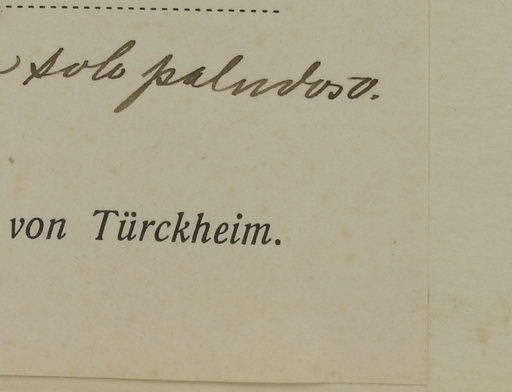 solo paludoso.
von Türckheim.